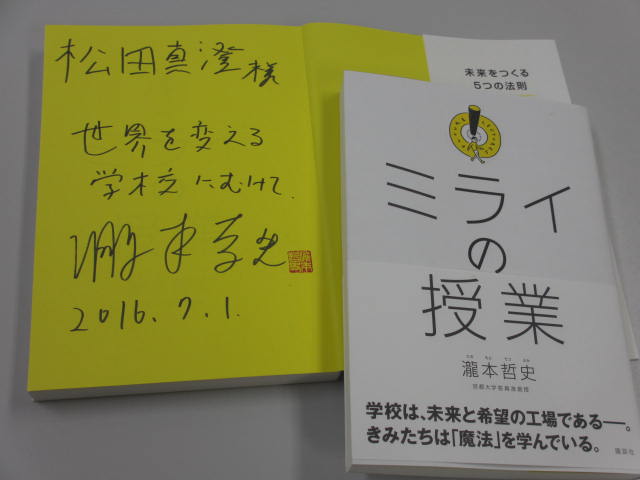 松田真澄様
世界を変える
学校にむけて.
瀧本哲史
2016.7.1.
未来をつくる
5つの法則
ミライ
の
授業
たき もと てつ ふみ
瀧本哲史
京都大学客員准教授
学校は、未来と希望の工場である――。
きみたちは「魔法」を学んでいる。
講談社